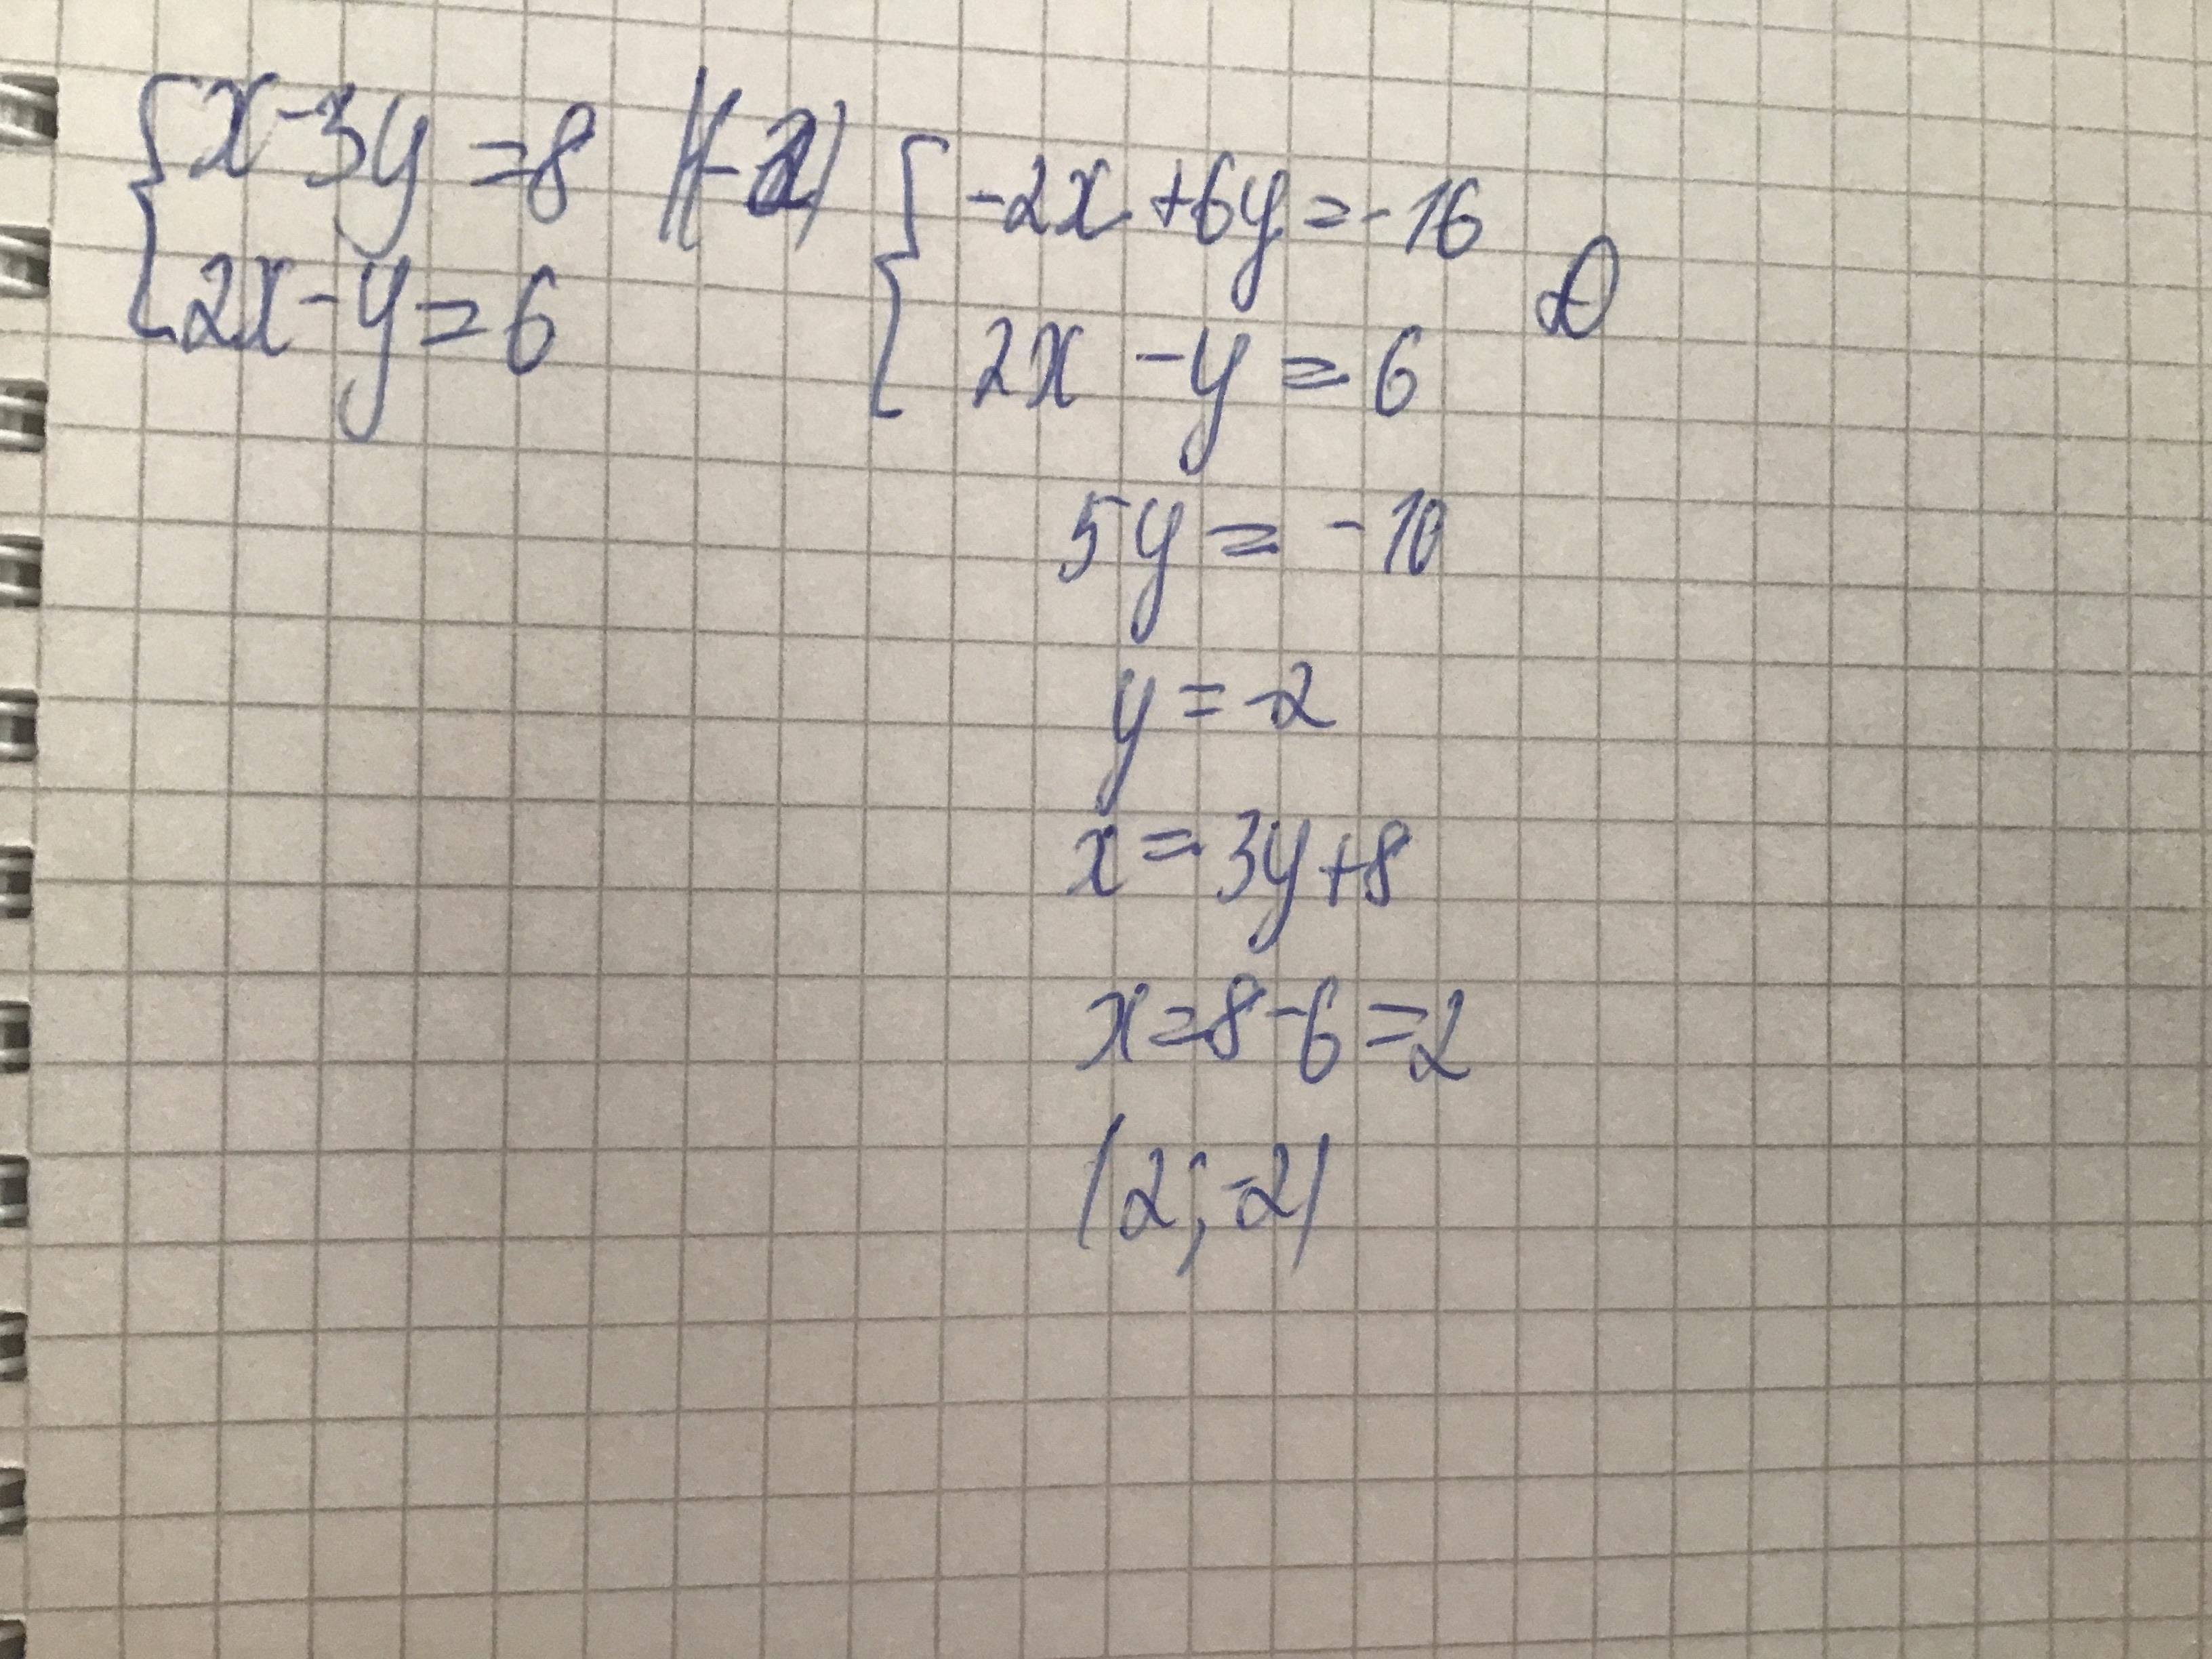 {x-3y=8 |(-2)
2x-y=6
{-2x+6y=-16
2x-y=6
5y=-10
y=-2
x=3y+8
x=8-6=2
(2;-2)